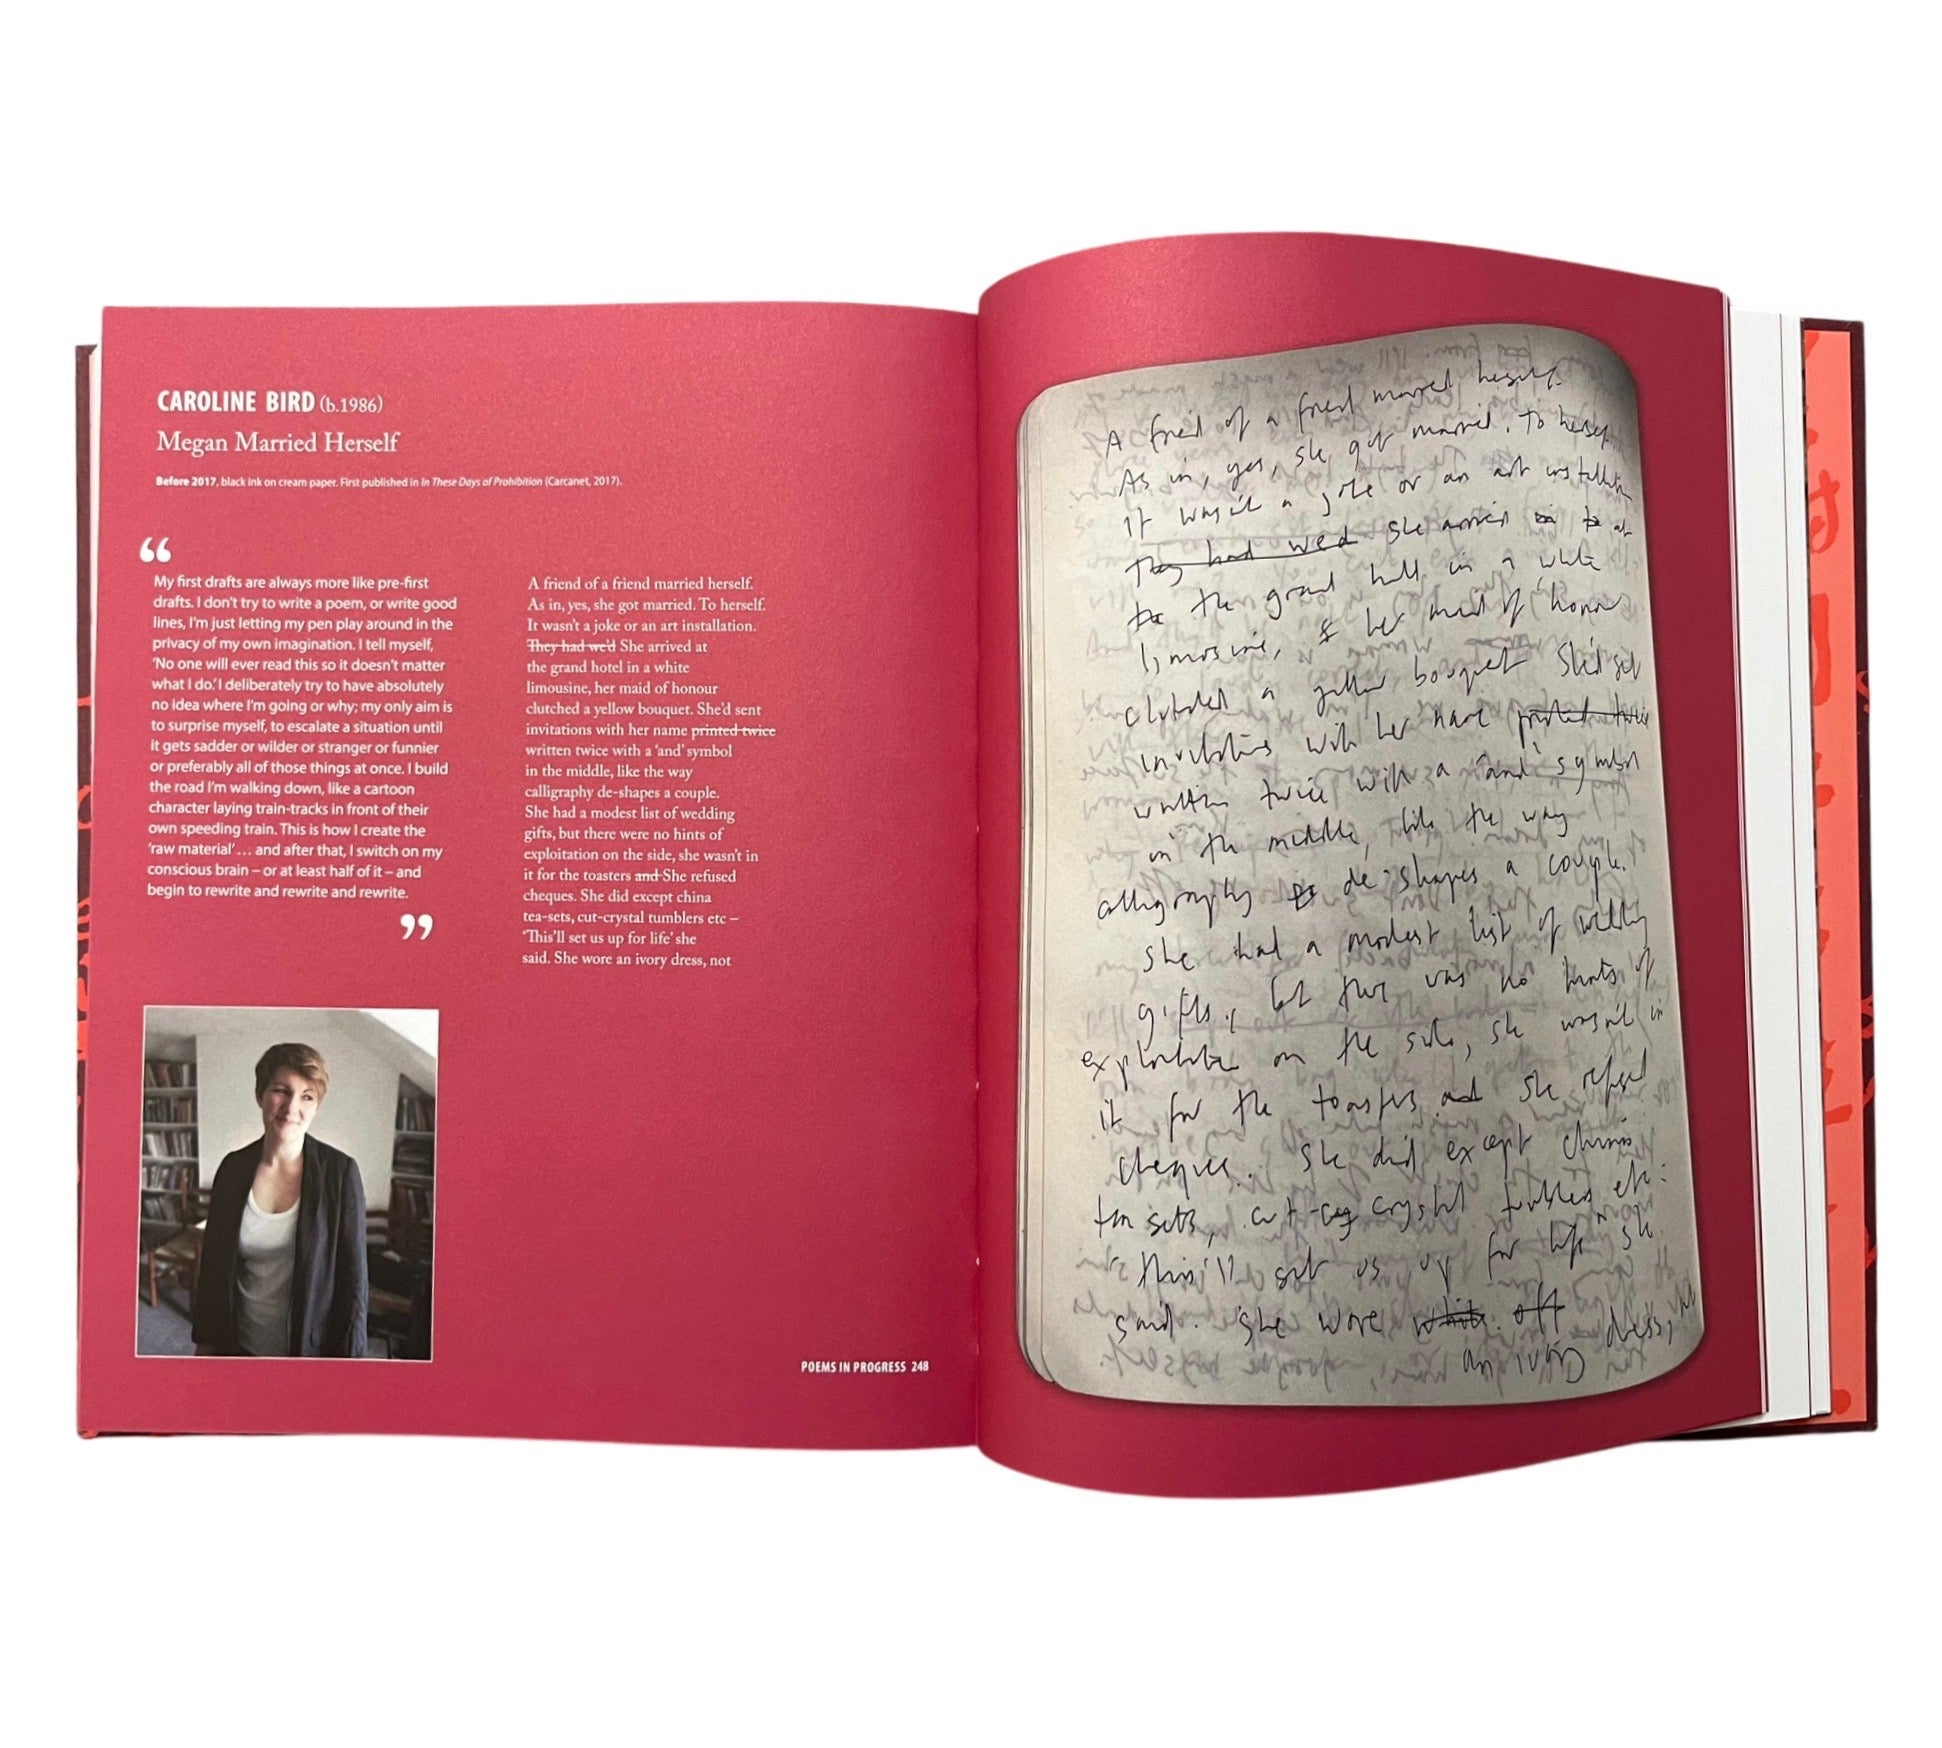 CAROLINE BIRD (b.1986)
Megan Married Herself
Before 2017, black ink on cream paper. First published in In These Days of Prohibition (Carcanet, 2017).
“
My first drafts are always more like pre-first
drafts. I don't try to write a poem, or write good
lines, I'm just letting my pen play around in the
privacy of my own imagination. I tell myself,
'No one will ever read this so it doesn't matter
what I do.' I deliberately try to have absolutely
no idea where I'm going or why; my only aim is
to surprise myself, to escalate a situation until
it gets sadder or wilder or stranger or funnier
or preferably all of those things at once. I build
the road I'm walking down, like a cartoon
character laying train-tracks in front of their
own speeding train. This is how I create the
'raw material' … and after that, I switch on my
conscious brain – or at least half of it – and
begin to rewrite and rewrite and rewrite.
”
A friend of a friend married herself.
As in, yes, she got married. To herself.
It wasn't a joke or an art installation.
They had we'd She arrived at
the grand hotel in a white
limousine, her maid of honour
clutched a yellow bouquet. She'd sent
invitations with her name printed twice
written twice with a 'and' symbol
in the middle, like the way
calligraphy de-shapes a couple.
She had a modest list of wedding
gifts, but there were no hints of
exploitation on the side, she wasn't in
it for the toasters and She refused
cheques. She did except china
tea-sets, cut-crystal tumblers etc –
'This'll set us up for life' she
said. She wore an ivory dress, not
POEMS IN PROGRESS 248
A friend of a friend married herself.
As in, yes, she got married. To herself.
It wasn't a joke or an art installation
They had we'd She arrived at
the grand in a white
limosine, & her maid of honour
clutched a yellow bouquet She'd sent
invitations with her name printed twice
written twice with a 'and' symbol
in the middle, like the way
calligraphy de-shapes a couple.
She had a modest list of wedding
gifts, but there was no hints of
exploitation on the side, she wasn't in
it for the toasters and She refused
cheques. She did except china
tea sets, cut-crystal tumblers etc.
"This'll set us up for life" she
said. She wore white off dress, not
an ivory